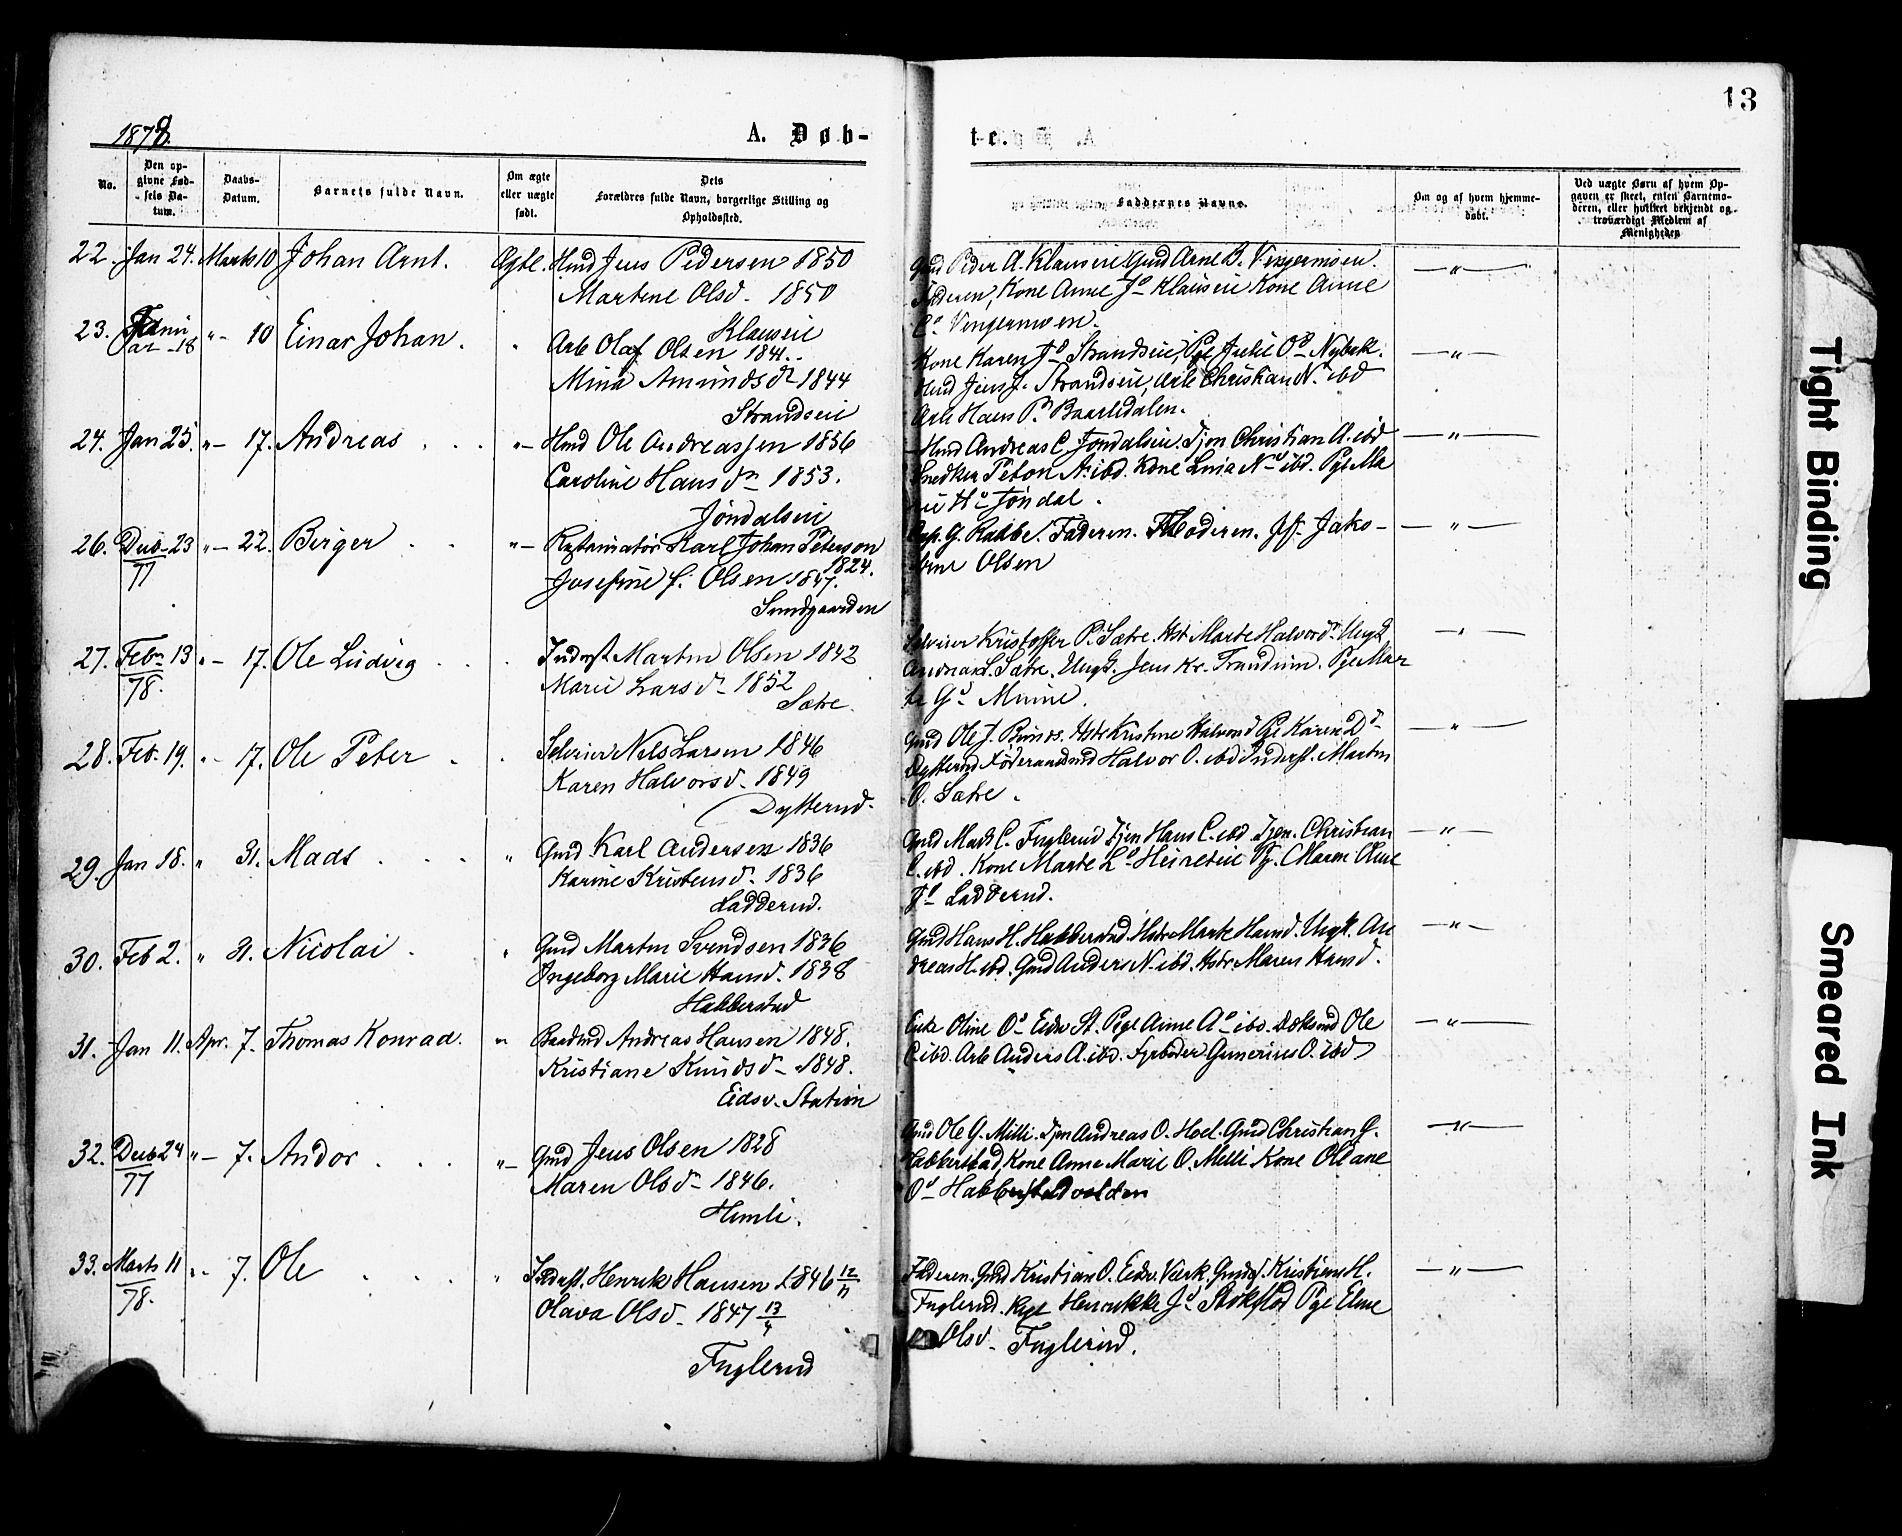 13
1878.
A. Døb-
te.
No.
Den op-
givne Fød-
sels Da-
tum.
Daabs-
Datum.
Barnets fulde Navn.
Om ægte
eller uægte
født.
Dets
Forældres fulde Navn, borgerlige Stilling og
Opholdssted.
Faddernes Navne.
Om og af hvem hjemme-
døbt.
Ved uægte Børn af hvem Op-
gaven er skeet, enten Barnemo-
deren, eller hvilket bekjendt og
troværdigt Medlem af
Menigheden
22. Jan 24. Marts 10 Johan Arnt. Ægte. Hmd Jens Pedersen 1850
Martine Olsd. 1850
Klauseie
Gmd Peder A. Klauseie Gmd Arne B. Vengermoen.
Faderen, Kone Anne Jd Klauseie Kone Anne
Vengermoen. — " —
23. Janu
ar - 18 " - 10 Einar Johan. Arb Olaf Olsen 1841.
Mina Amundsdr 1844
Strandseie
Kone Karen Jd Strandseie, Pge Julie Od Nybakk.
Hmd Jens J. Strandseie, Arb Christian N. ibd
Arb Hans P. Baarlidalen. — " —
24. Jan 25. " - 17. Andreas . . . " - Hmd Ole Andreassen 1856
Caroline Hansdr 1853.
Jøndalseie
Hmd Andreas C. Jøndalseie. Tjen Christian A. ibd
Snedker Peton A. ibd. Kone Lina Nd ibd. Pge Ma
rie Hd Jøndal. — " —
26. Deeb. 23
77 " - 22. Birger . . " - Karl Johan Peterson
1824.
Josefine f. Olsen 1847.
Sundgaarden
G. Rabbe. Faderen. Moderen. Jfr. Jako-
bine Olsen — " —
27. Febr 13
78. " - 17. Ole Ludvig . . . Inderst Martin Olsen 1842
Marie Larsdr 1852
Sætre.
Selveier Kristoffer P. Sætre. Hst Marte Halvordr Ungk
Andreas L. Sætre. Ungk. Jens Kr. Trandum. Pge Mar
te Gd Minne. — " —
28. Feb. 19. " - 17. Ole Peter . . Selveier Nels Larsen 1846
Karen Halvorsd. 1849
Dytterud.
Gmd Ole J. Hstr Kristine Halvord Pge Karen Dd
Dytterud Føderaadmd Halvor O. ibd Inderst. Martin
O. Sætre. — " —
29. Jan 18. " 31. Mads . . . " Gmd Karl Andersen 1836
Karine Kristensd. 1836
Ladderud.
Gmd Mads C. Fuglerud Tjen Hans C. ibd Tjen. Christian
C. ibd. Kone Marte Ld Pg. Maren Oline
Jd Ladderud. — " —
30. Feb 2. " 31. Nicolai . " Gmd Martin Svendsen 1836
Ingeborg Marie Hansd. 1838
Habberstad
Gmd Hans H. Habberstad. Hstr Marte Hansd. Ungk. An
dreas H. ibd. Gmd Anders N. ibd. Hstr Maren Hansd. — " —
31. Jan 11. Apr. 7. Thomas Konrad. " Andreas Hansen 1848.
Kristiane Knudsd. 1848.
Eidsv. Station
Enke Oline Od Eidsv St. Pige Anne Ad ibd. Ole
C. ibd. Arb Anders A. ibd. Fyrbøder Gunerius O. ibd — " —
32. Deeb 24
77 " - 7. Andor . . . " - Gmd Jens Olsen 1828
Maren Olsd. 1846.
Himli.
Gmd Ole G. Milli. Tjen Andreas O. Hoel. Gmd Christian G.
Habberstad, Kone Anne Marie O. Melli Kone Oleane
Od Habberstadvolden — " —
33. Marts 11
78. " - 7. Ole . . . " Inderst. Henrik Hansen 1846 12/11
Olava Olsd. 1847 13/4
Fuglerud
Faderen. Gmd Kristian O. Eidsv. Værk. Kristian H.
Fuglerud. Henrikke Jd Pge Eline
Olsd. Fuglerud. — " —
Tight Binding
Smeared Ink